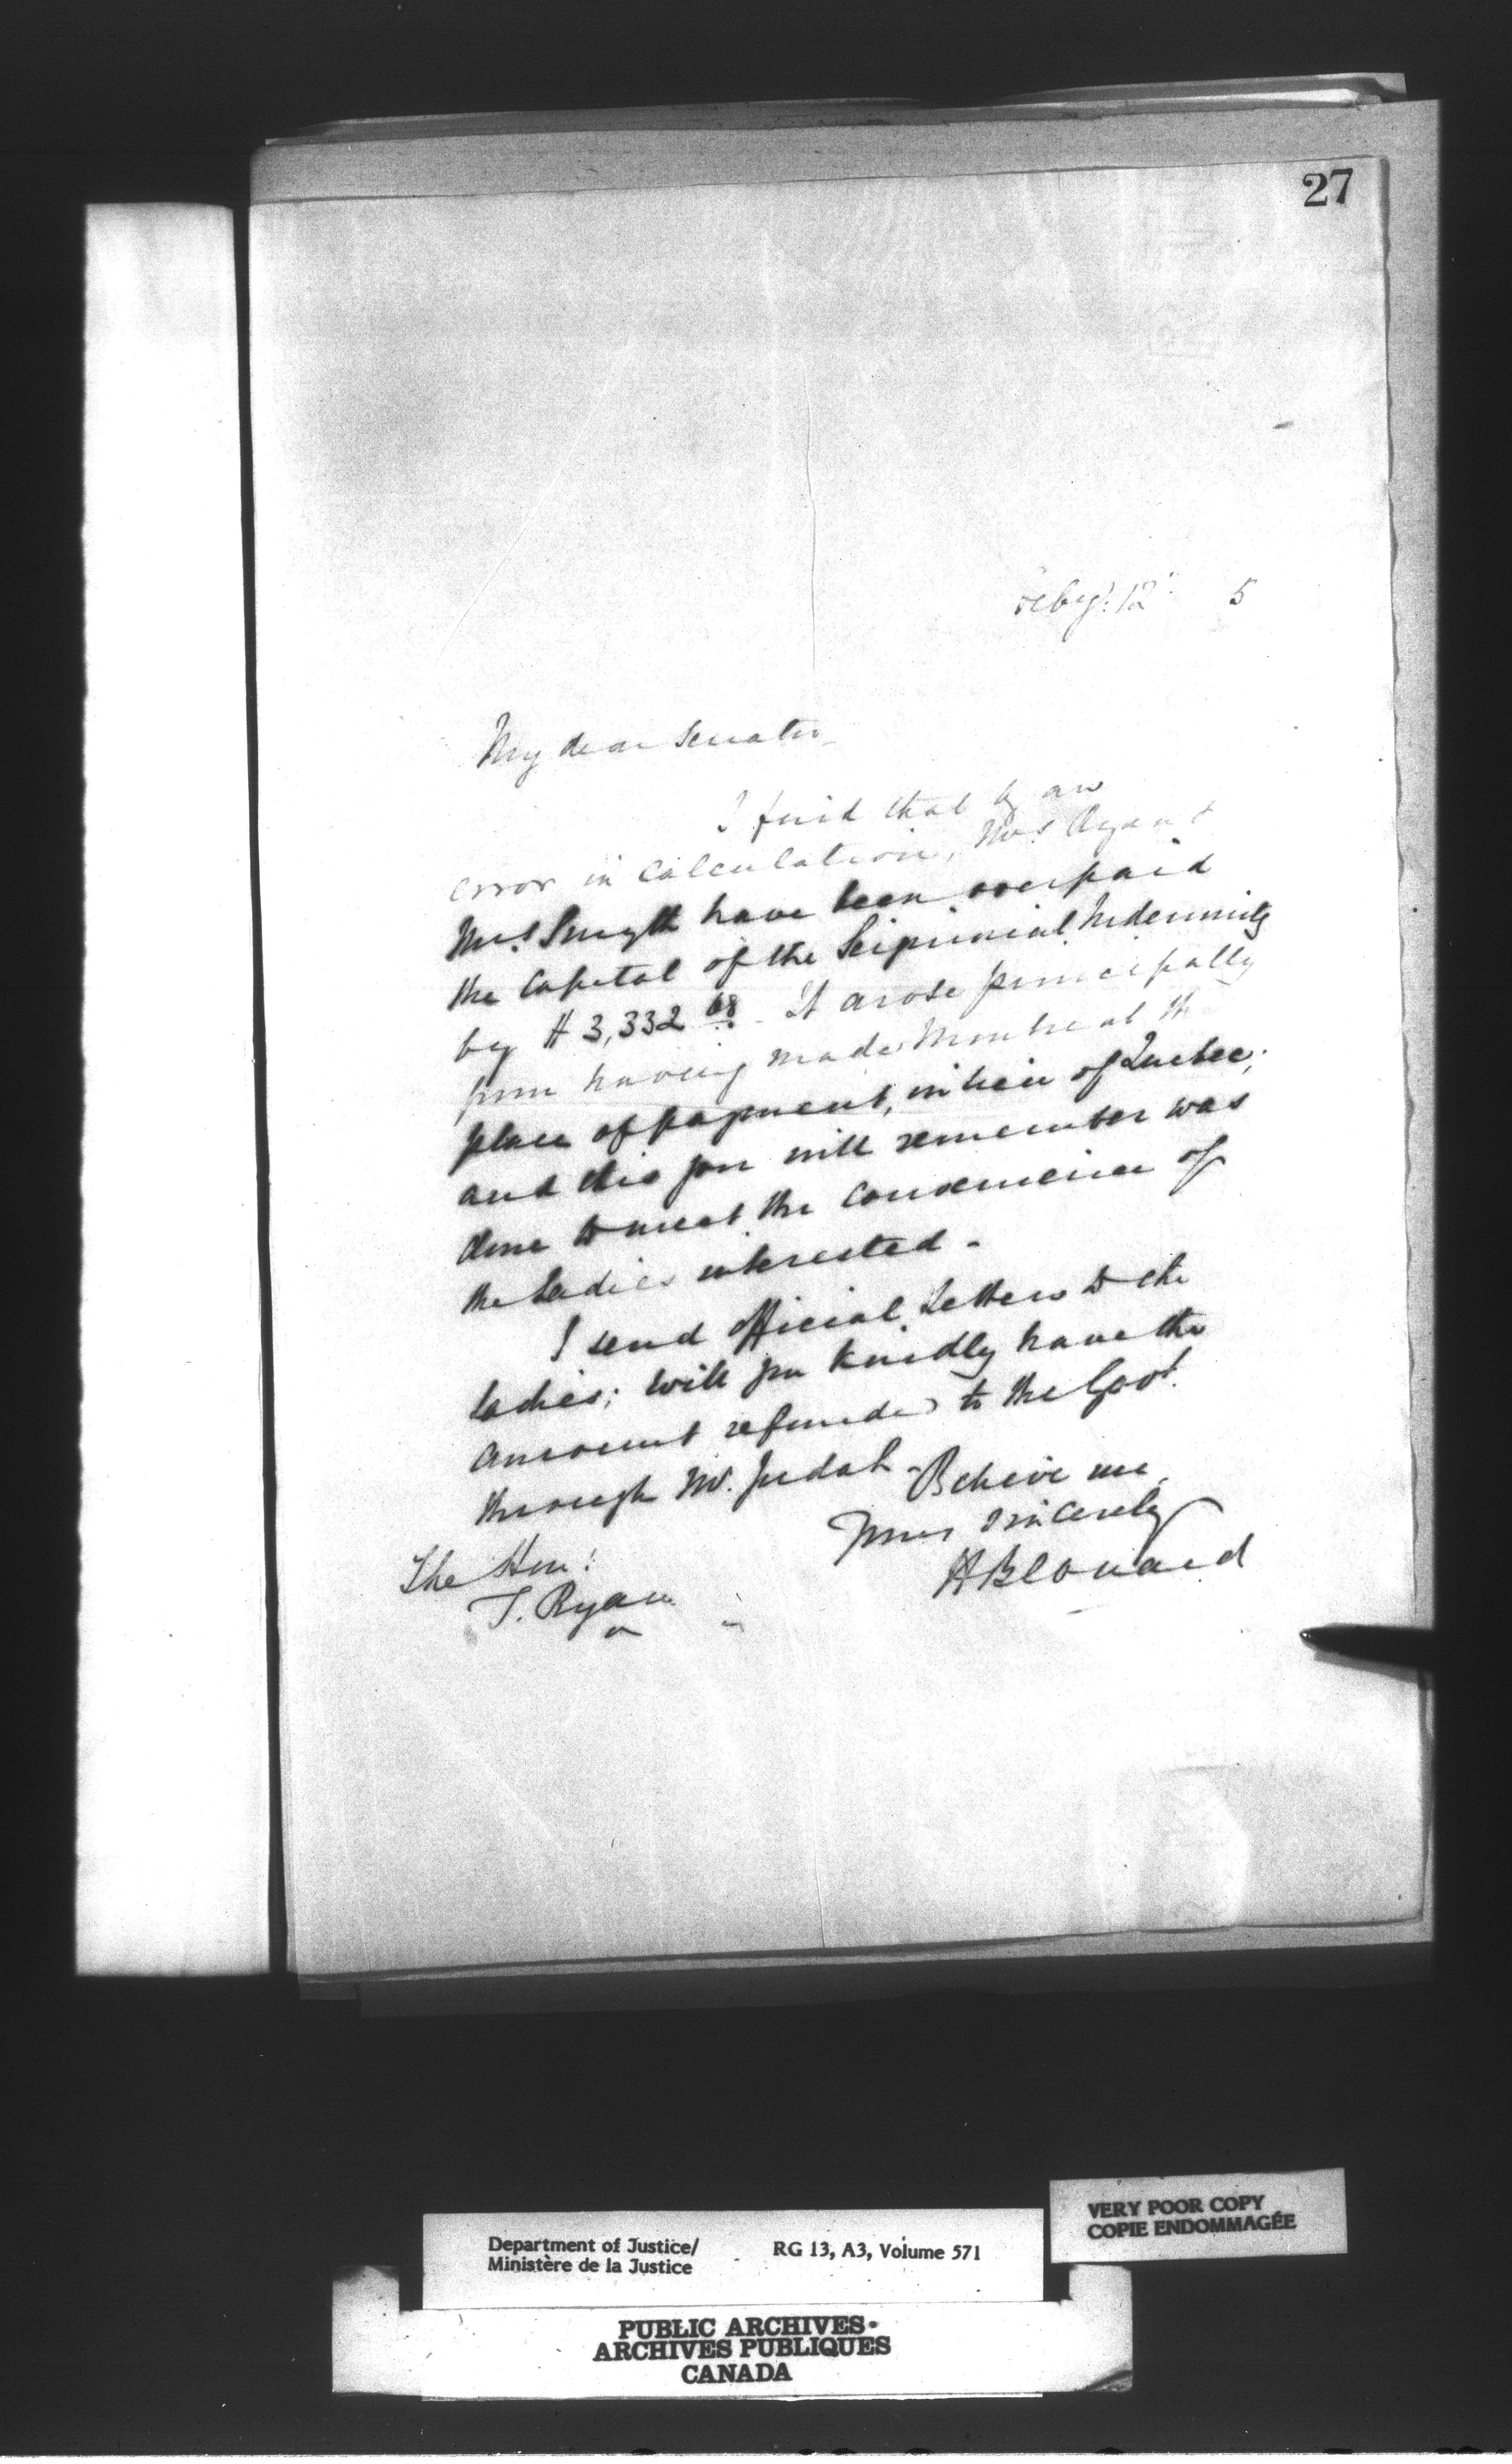 27
Feby. 12 5
My dear Senator
I find that by an
error in Calculation, Mrs Ryan &
Mrs Smyth have been overpaid
the Capital of the Seigniorial Indemnity
by $3,332 68. It arose principally
from having made Montreal the
place of payment, in lieu of Quebec;
and this you will remember was
done to meet the convenience of
the Ladies interested -
I send official Letters to the
Ladies; will you kindly have the
amount refunded to the Govt.
through Mr. Judah - Believe me
Yours Sincerely
H Bernard
The Hon:
T. Ryan
Department of Justice/
Ministère de la Justice
RG 13, A3, Volume 571
VERY POOR COPY
COPIE ENDOMMAGÉE
PUBLIC ARCHIVES
ARCHIVES PUBLIQUES
CANADA